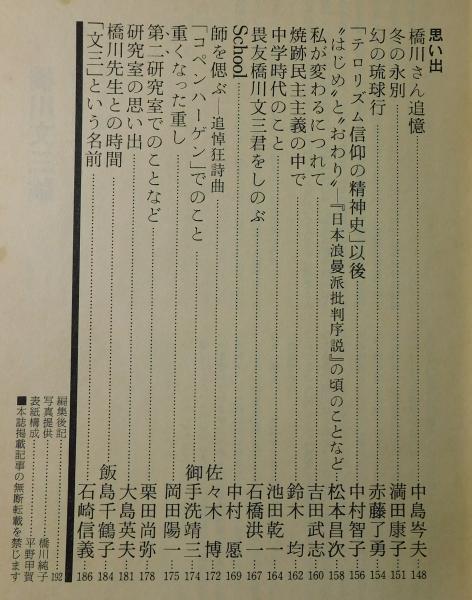 思い出
橋川さん追憶……中島岑夫 148
冬の永別……満田康子 151
幻の琉球行……赤藤了勇 154
「テロリズム信仰の精神史」以後……中村智子 156
〝はじめ〟と〝おわり〟―『日本浪曼派批判序説』の頃のことなど……松本昌次 158
私が変わるにつれて……吉田武志 160
焼跡民主主義の中で……鈴木均 162
中学時代のこと……池田乾一 164
畏友橋川文三君をしのぶ……石橋洪一 167
School……中村愿 169
師を偲ぶ―追悼狂詩曲……佐々木博 172
「コペンハーゲン」でのこと……御手洗靖三 174
重くなった重し……岡田陽一 175
第二研究室でのことなど……栗田尚弥 178
研究室の思い出……大島英夫 181
橋川先生との時間……飯島千鶴子 184
「文三」という名前……石崎信義 186
編集後記……192
写真提供……橋川純子
表紙構成……平野甲賀
■本誌掲載記事の無断転載を禁じます